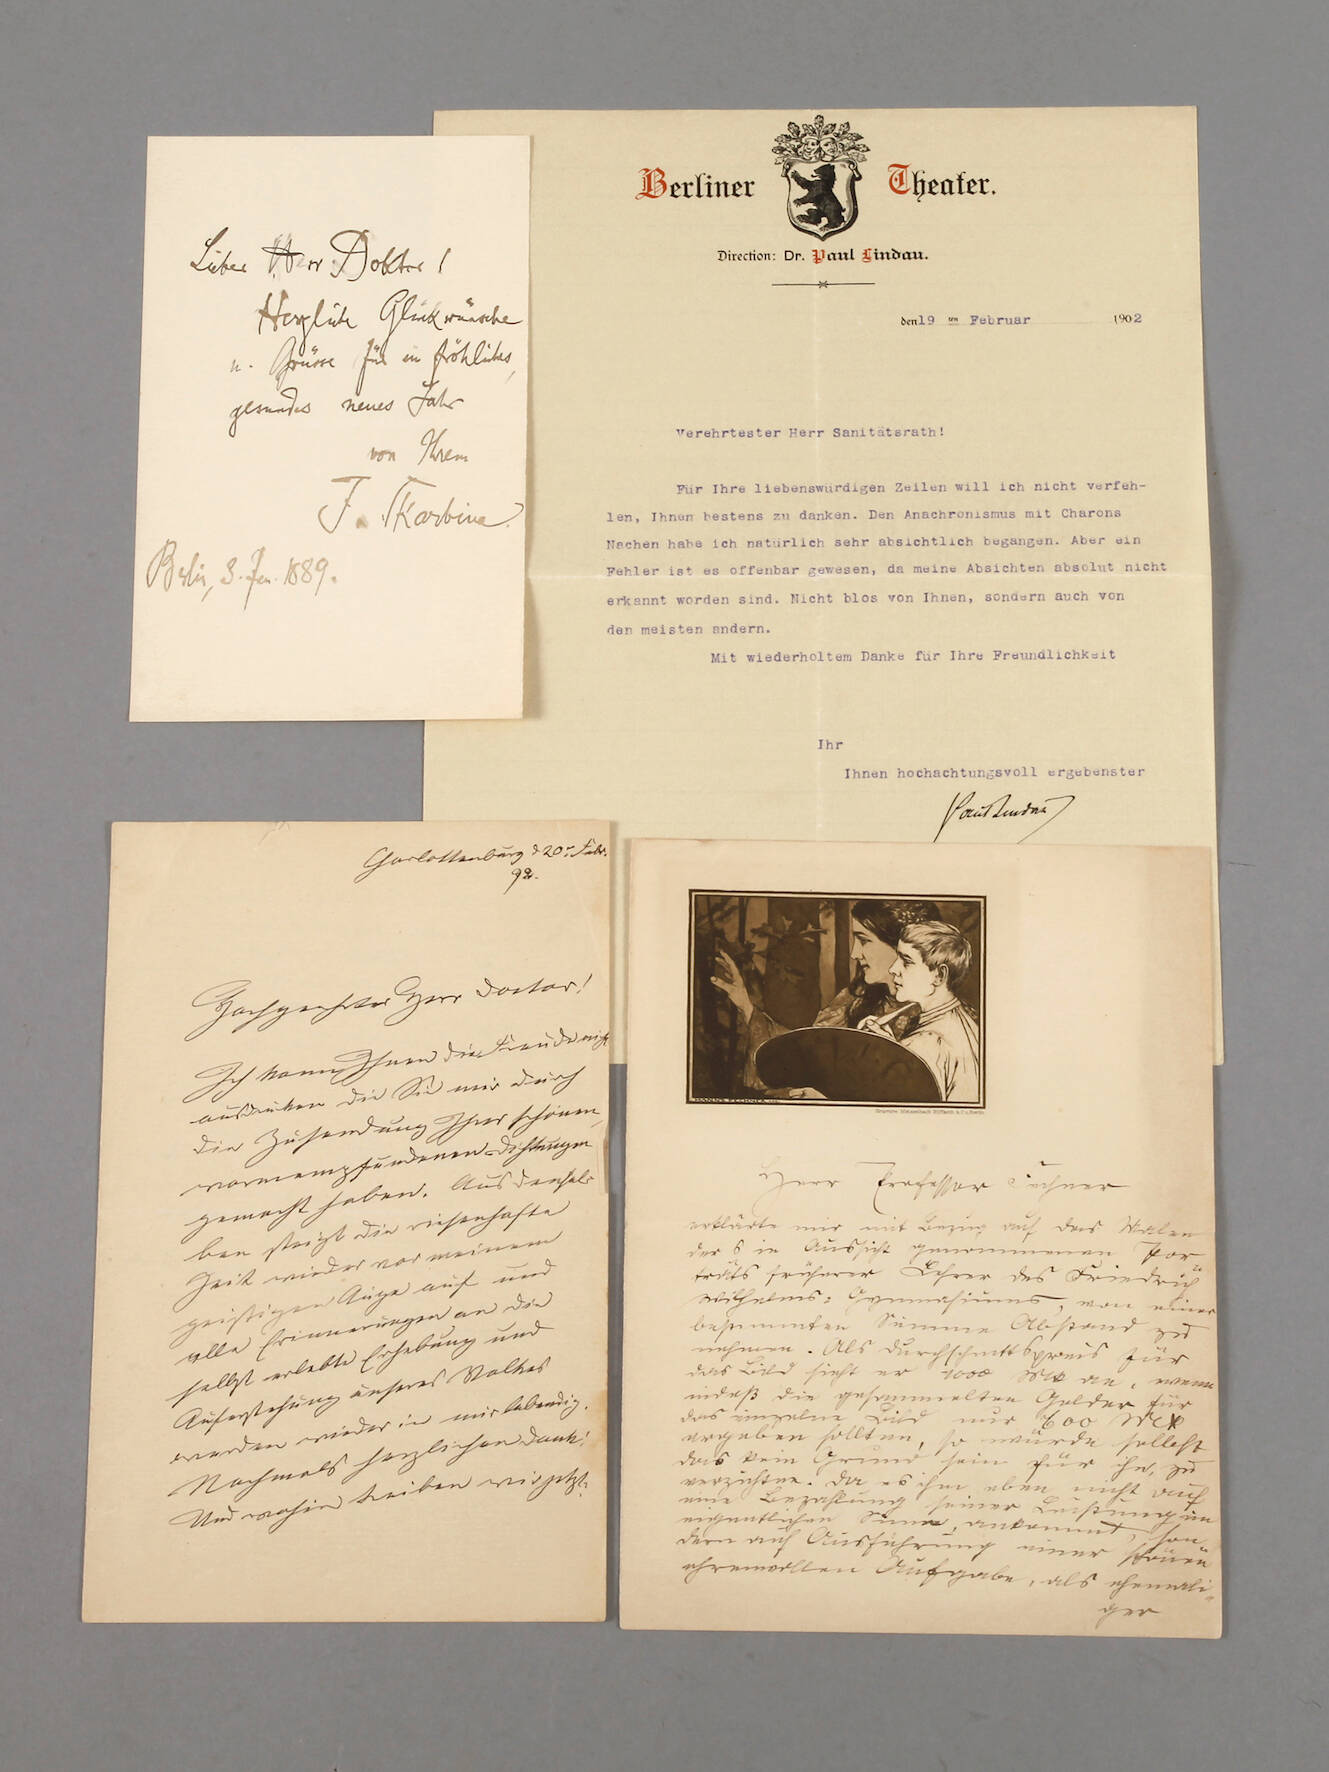 Lieber Herr Doktor!
Herzliche Glückwünsche
u. Grüsse für ein fröhliches,
gesundes neues Jahr
von Ihrem
F. Skarbina.
Berlin, 3. Jan. 1889.
Berliner Theater.
Direction: Dr. Paul Lindau.
den 19 ten Februar 1902
Verehrtester Herr Sanitätsrath!
Für Ihre liebenswürdigen Zeilen will ich nicht verfeh-
len, Ihnen bestens zu danken. Den Anachronismus mit Charons
Nachen habe ich natürlich sehr absichtlich begangen. Aber ein
Fehler ist es offenbar gewesen, da meine Absichten absolut nicht
erkannt worden sind. Nicht blos von Ihnen, sondern auch von
den meisten andern.
Mit wiederholtem Danke für Ihre Freundlichkeit
Ihr
Ihnen hochachtungsvoll ergebenster
Paul Lindau
Charlottenburg d 20t Febr.
92.
Hochgeehrter Herr Doctor!
Ich kann Ihnen die Freude nicht
ausdrücken die Sie mir durch
die Zusendung Ihrer schönen,
warmempfundenen Dichtungen
gemacht haben. Aus densel-
ben steigt die riesenhafte
Zeit wieder vor meinem
geistigen Auge auf und
alle Erinnerungen an die
selbst erlebte Erhebung und
Auferstehung unseres Volkes
werden wieder in mir lebendig.
Nochmals herzlichen Dank!
Und wohin treiben wir jetzt?
HANNS FECHNER
Herr Professor Fechner
erklärte mir mit Bezug auf das Malen
der 6 in Aussicht genommenen Por-
träts früherer Lehrer des Friedrich
Wilhelms-Gymnasiums, von einer
bestimmten Summe Abstand zu
nehmen. Als Durchschnittspreis für
das Bild sieht er 1000 Mk an, wenn
indeß die gesammelten Gelder für
das einzelne Bild nur 600 Mk
ergeben sollten, so würde selbst
das kein Grund sein für ihn, zu
verzichten. Da es ihm eben nicht auf
eine Bezahlung seiner Leistung im
eigentlichen Sinne, ankommt, son-
dern auf Ausführung einer schönen
ehrenvollen Aufgabe, als ehemali-
ger